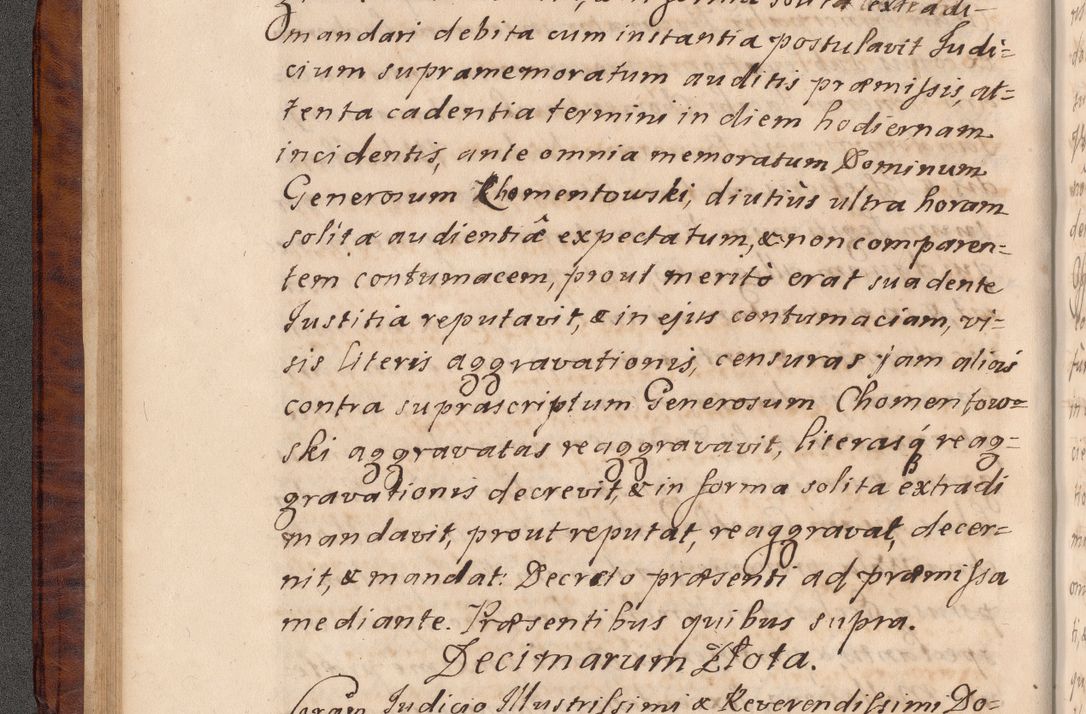 & in forma solita extradi-
mandari debita cum instantia postulavit Judi-
cium supramemoratum auditis præmissis, at-
tenta cadentia termini in diem hodiernam
incidentis, ante omnia memoratum Dominum
Generosum Chomentowski, diutiùs ultra horam
solitæ audientiæ expectatum, & non comparen-
tem contumacem, prout meritò erat suadente
Justitia reputavit, & in ejus contumaciam, vi-
sis literis aggravationis, censuras jam aliàs
contra suprascriptum Generosum Chomentow-
ski aggravatas reaggravavit, literasq́ reag-
gravationis decrevit, & in forma solita extradi
mandavit, prout reputat, reaggravat, decer-
nit, & mandat. Decreto præsenti ad præmissa
mediante. Præsentibus quibus supra.
Decimarum Złota.
Coram Judicio Illustrissimi & Reverendissimi Do-